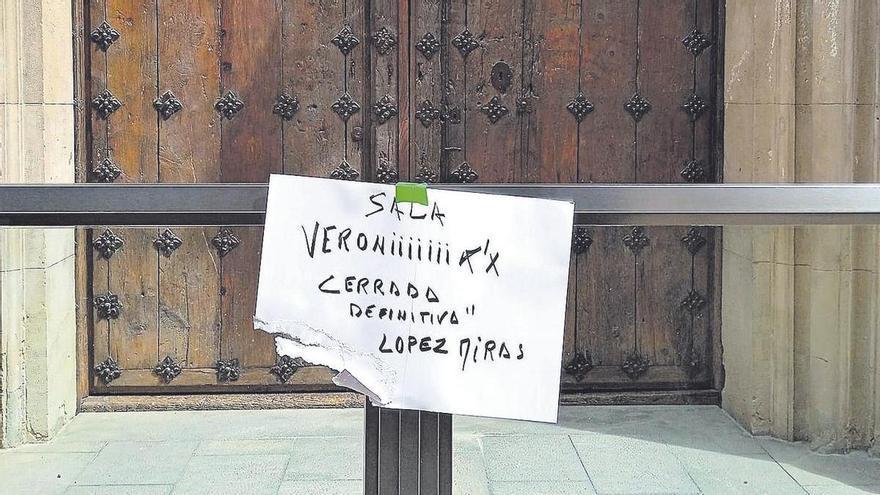 SALA
VERONiiiiiii K'X
CERRADA
DEFINITIVA"
LOPEZ MIRAS